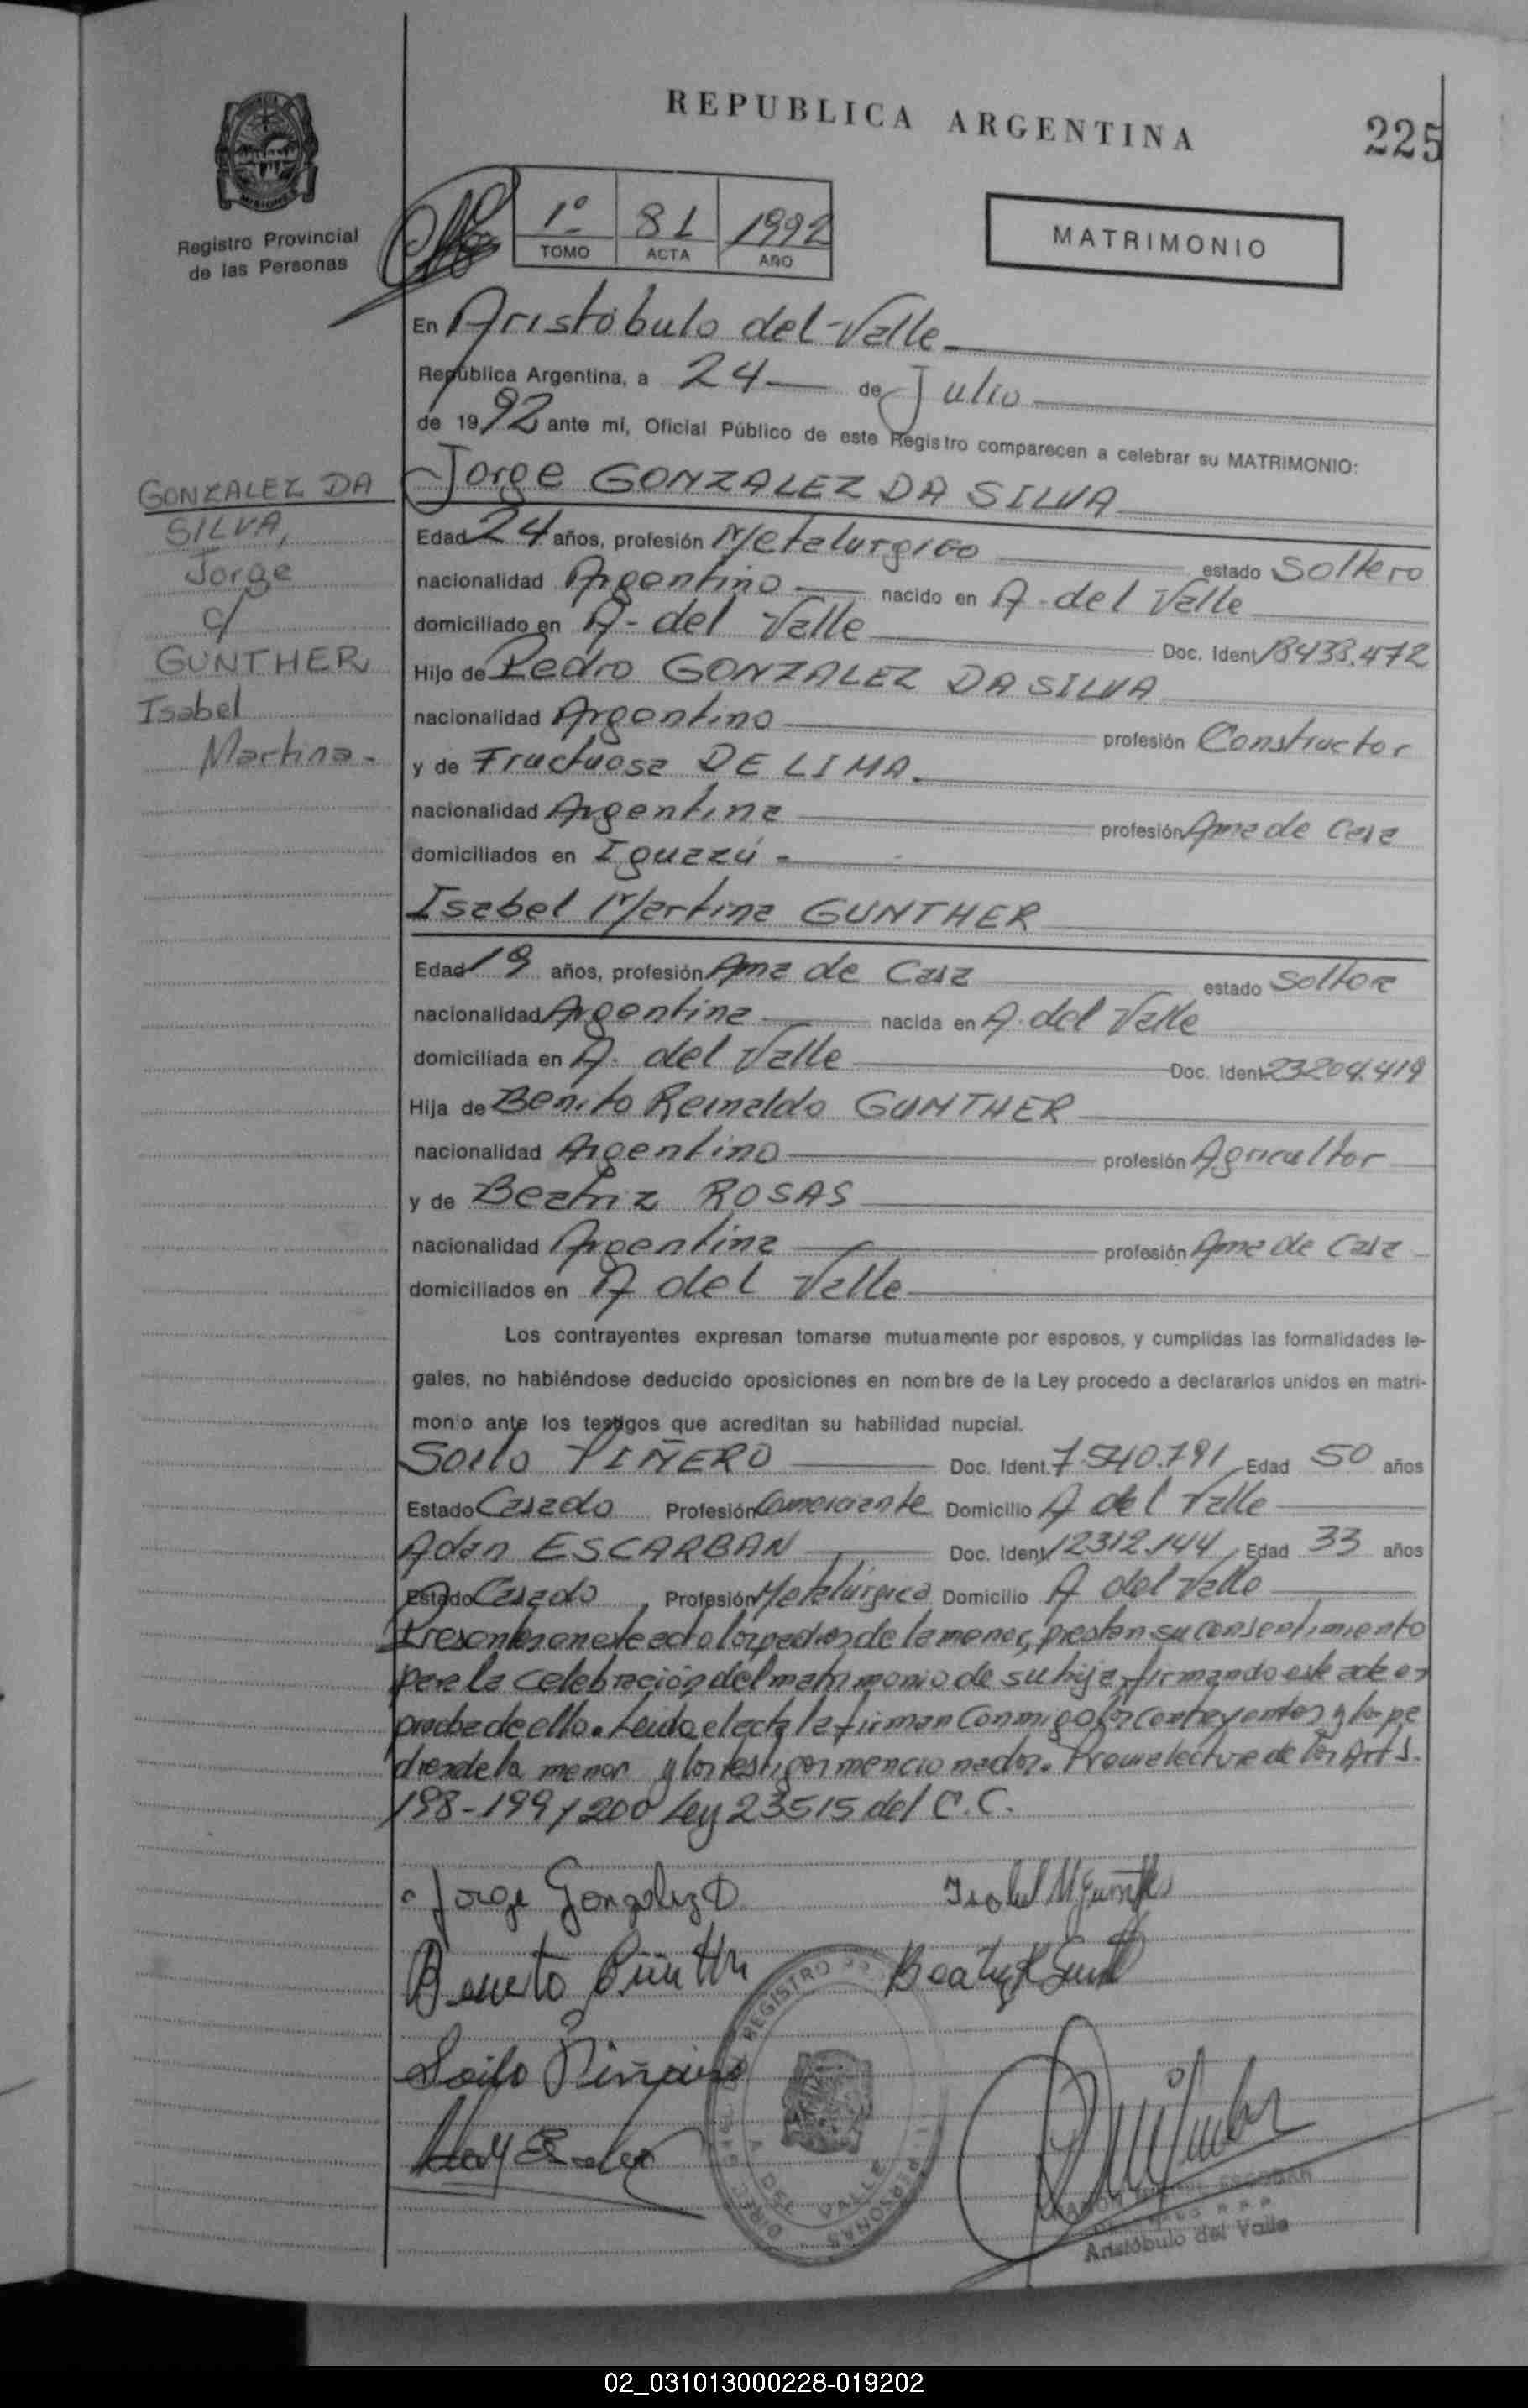 REPUBLICA ARGENTINA
225
MISIONES
Registro Provincial
de las Personas
1º 81 1992
TOMO ACTA AÑO
MATRIMONIO
En Aristóbulo del Valle
República Argentina, a 24 de Julio
de 1992 ante mi, Oficial Público de este Registro comparecen a celebrar su MATRIMONIO:
GONZALEZ DA
SILVA,
Jorge
c/
GUNTHER
Isabel
Martina-
Jorge GONZALEZ DA SILVA
Edad 24 años, profesión Metalurgico estado Soltero
nacionalidad Argentino nacido en A. del Valle
domiciliado en A. del Valle Doc. Ident. 18438.472
Hijo de Pedro GONZALEZ DA SILVA
nacionalidad Argentino profesión Constructor
y de Fructuosa DE LIMA.
nacionalidad Argentina profesión Ama de Casa
domiciliados en Iguazú -
Isabel Martina GUNTHER
Edad 19 años, profesión Ama de Casa estado Soltera
nacionalidad Argentina nacida en A. del Valle
domiciliada en A. del Valle Doc. Ident. 23204.419
Hija de Benito Reinaldo GUNTHER
nacionalidad Argentino profesión Agricultor
y de Beatriz ROSAS
nacionalidad Argentina profesión Ama de Casa
domiciliados en A del Valle
Los contrayentes expresan tomarse mutuamente por esposos, y cumplidas las formalidades le-
gales, no habiéndose deducido oposiciones en nombre de la Ley procedo a declararlos unidos en matri-
monio ante los testigos que acreditan su habilidad nupcial.
Soilo PIÑERO Doc. Ident. 7.540.791 Edad 50 años
Estado Casado Profesión Comerciante Domicilio A del Valle
Adan ESCARBAN Doc. Ident. 12312.144 Edad 33 años
Estado Casado Profesión Metalúrgico Domicilio A del Valle
Presentes en este acto los padres de la menor, prestan su consentimiento
para la celebración del matrimonio de su hija, firmando este acta en
prueba de ello. Leida el acta la firman conmigo los contrayentes y los pa
dres de la menor y los testigos mencionados. Previa lectura de los Arts.
198-199 y 200 Ley 23515 del C.C.
Jorge Gonzalez D.
Isabel M Gunther
Benito Günther
Soilo Piñeiro
REGISTRO
PERSONAS
A. DEL VALLE
ESCOBAR
Aristóbulo del Valle
02_031013000228-019202